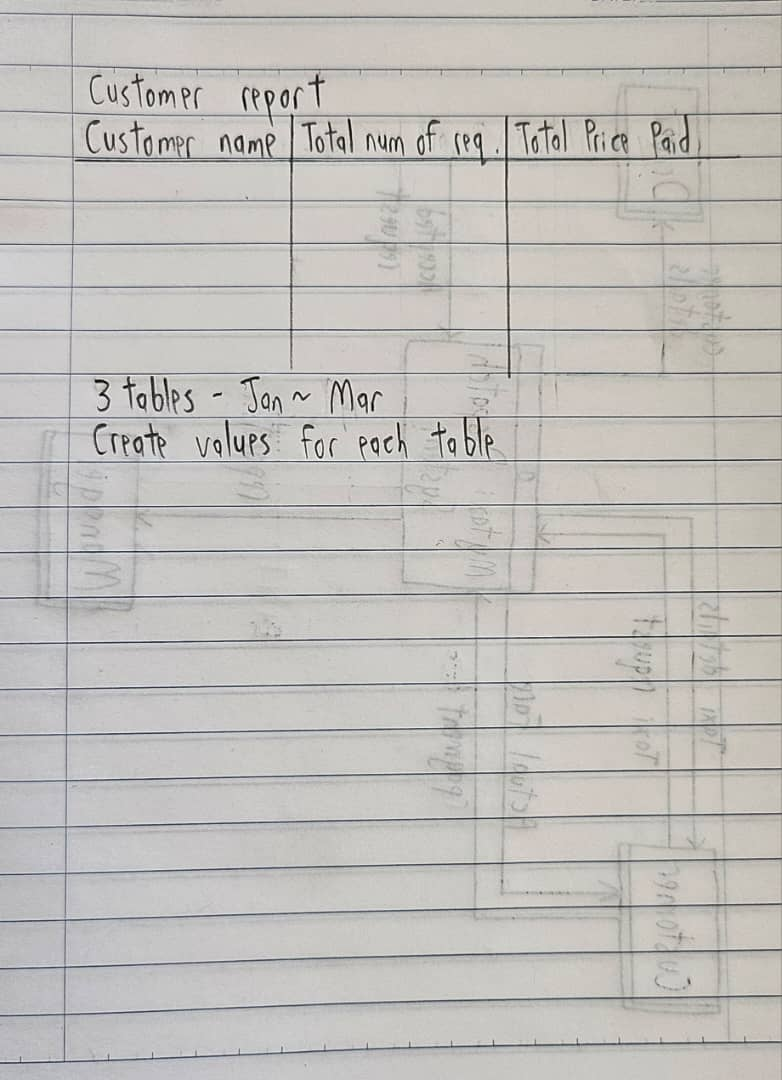 Customer report
Customer name Total num of req. Total Price Paid
3 tables - Jan ~ Mar
Create values for each table